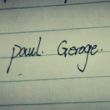 Paul. Geroge.